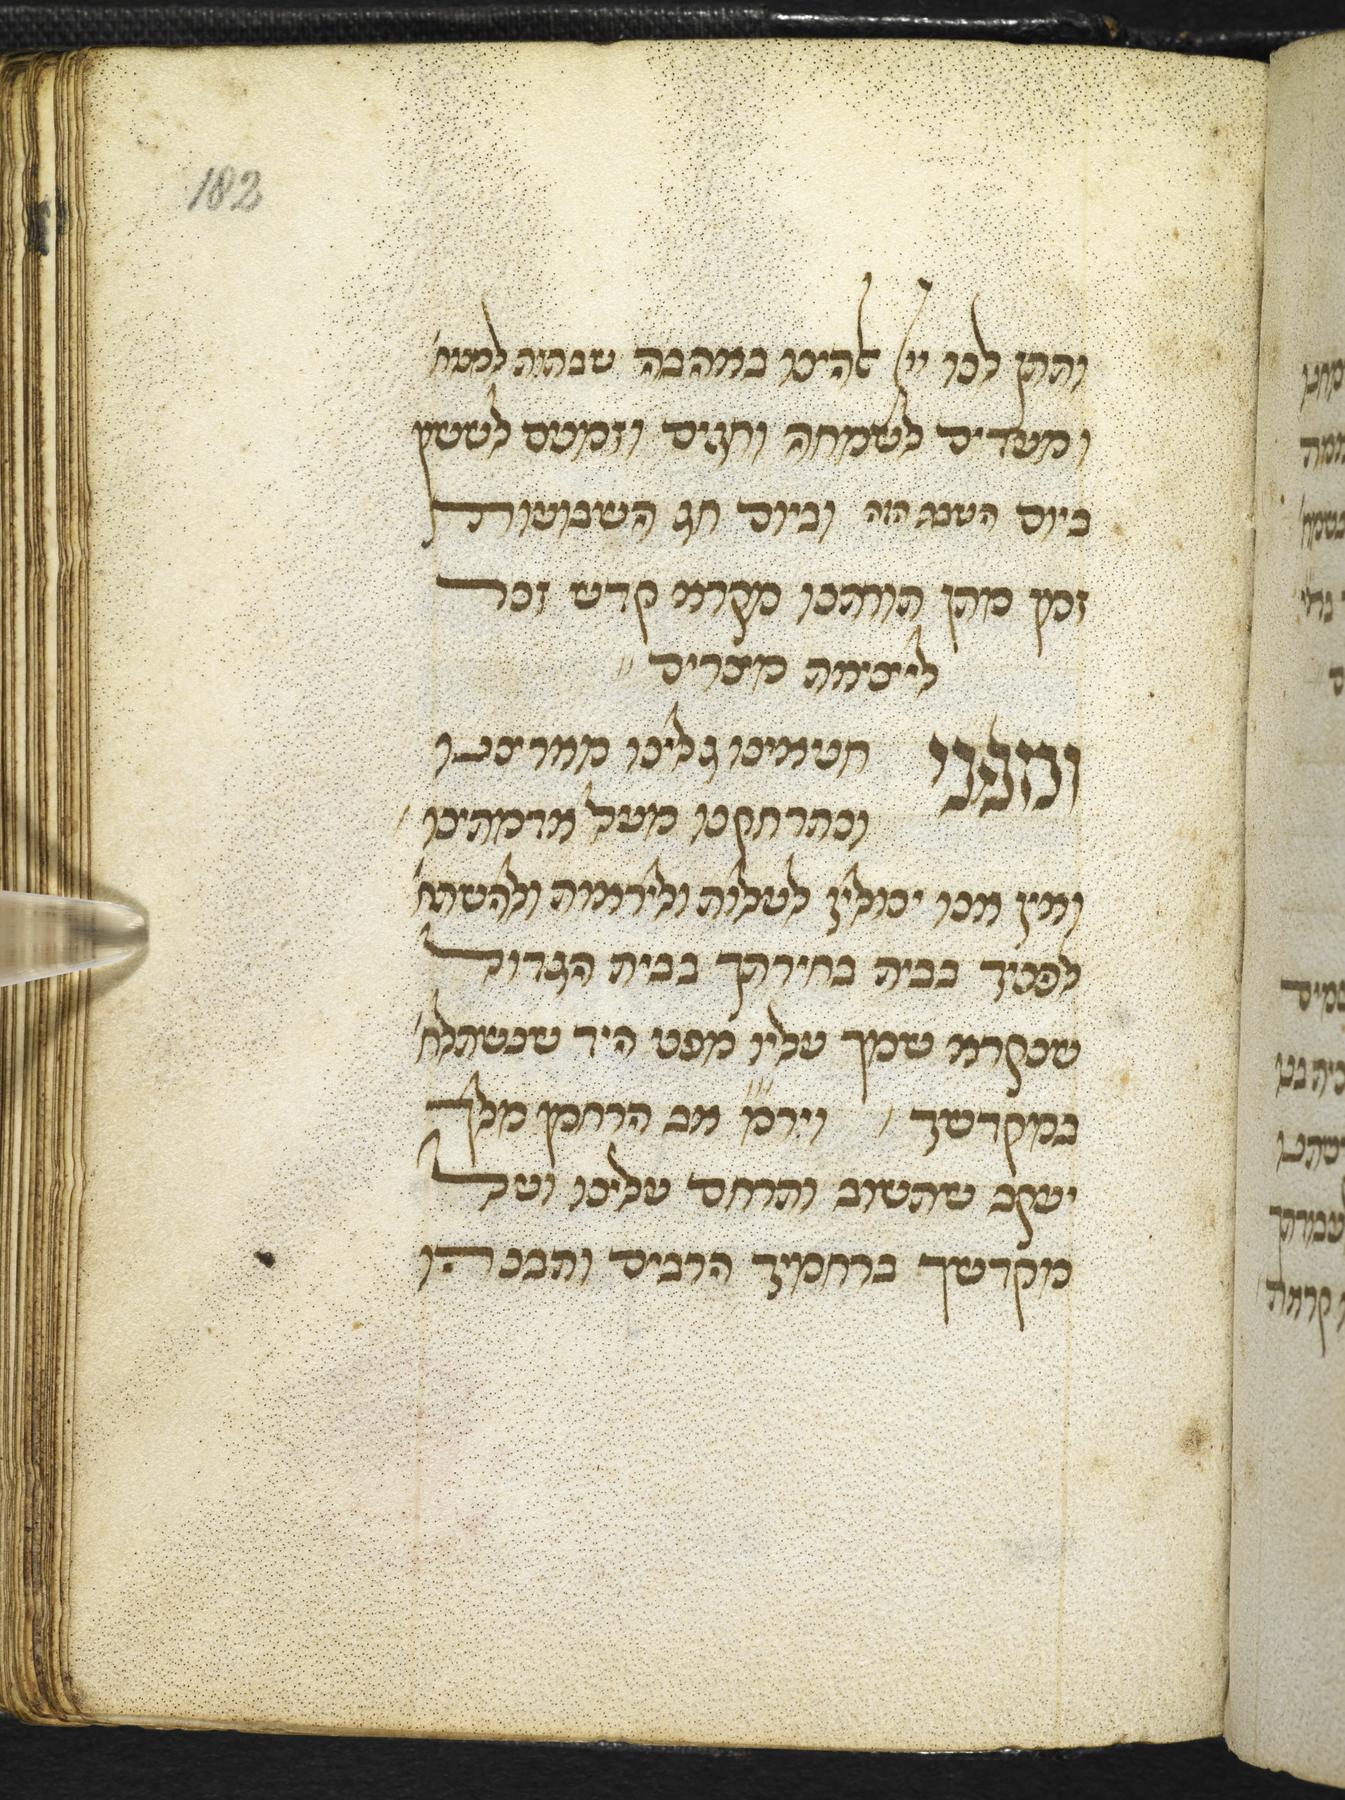 182
ותתן לנו יי' אלהינו באהבה שבתות למנוח'
ומועדים לשמחה וחגים וזמנים לששון
ביום השבת הזה וביום חג השבועות
זמן מתן תורתנו מקרא קדש זכר
ליציאת מצרים
ומפני חטאינו גלינו מארצנו
ונתרחקנו מעל אדמתינו
ואין אנו יכולין לעלות ולירמות ולהשתח'
לפניך בבית בחירתך בבית הגדול
שנקרא שמך עליו מפני היד שנשתלח'
במקדשך ויר"מ אב הרחמן מלך
יעקב שתשוב ותרחם עלינו ועל
מקדשך ברחמיך הרבים ותבנהו